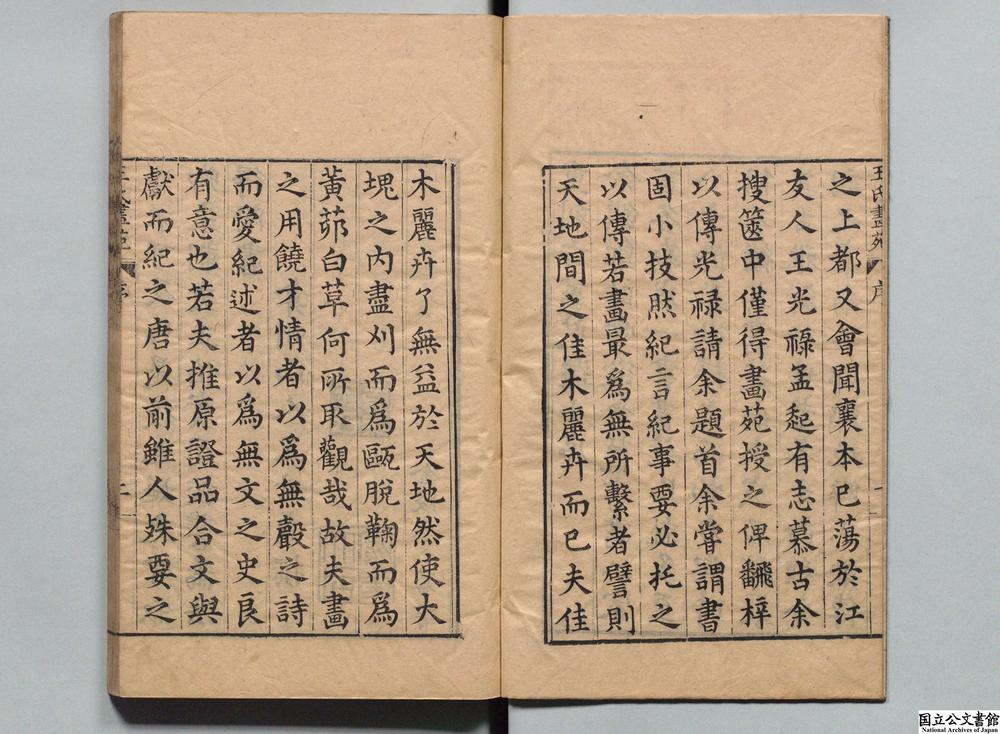 王氏畫苑 序 一
之上都又會聞襄本已蕩於江
友人王光祿孟起有志慕古余
搜篋中僅得畫苑授之俾翻梓
以傳光祿請余題首余嘗謂書
固小技然紀言紀事要必托之
以傳若畫最為無所繫者譬則
天地間之佳木麗卉而已夫佳
木麗卉了無益於天地然使大
塊之內盡刈而為甌脫鞠而為
黃茆白草何所取觀哉故夫畫
之用饒才情者以為無聲之詩
而愛紀述者以為無文之史良
有意也若夫推原證品合文與
獻而紀之唐以前雖人殊要之
王氏畫苑 序 二
国立公文書館
National Archives of Japan